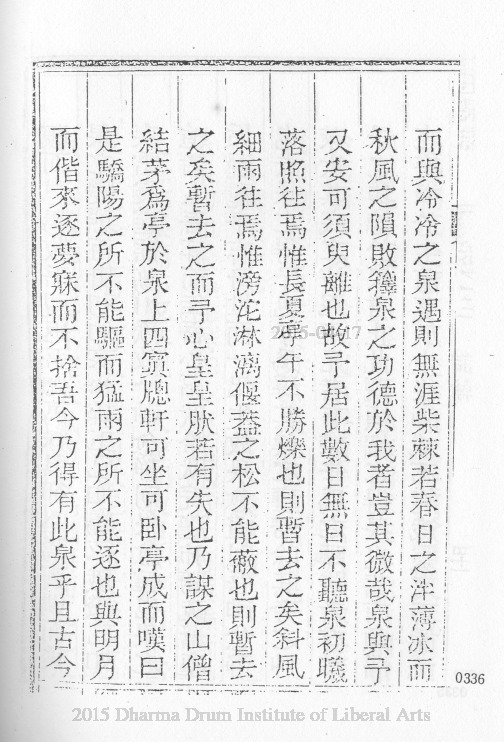 而與冷冷之泉遇則無涯柴棘若春日之泮薄冰而
秋風之隕敗蘀泉之功德於我者豈其微哉泉與予
又安可須臾離也故予居此數日無日不聽泉初曦
落照往焉惟長夏亭午不勝爍也則暫去之矣斜風
細雨往焉惟滂沱淋漓偃葢之松不能蔽也則暫去
之矣暫去之而予心皇皇肰若有失也乃謀之山僧
結茅爲亭於泉上四窻牕軒可坐可卧亭成而嘆曰
是驕陽之所不能驅而猛雨之所不能逐也與明月
而偕來逐夢寐而不捨吾今乃得有此泉乎且古今
0336
2015 Dharma Drum Institute of Liberal Arts